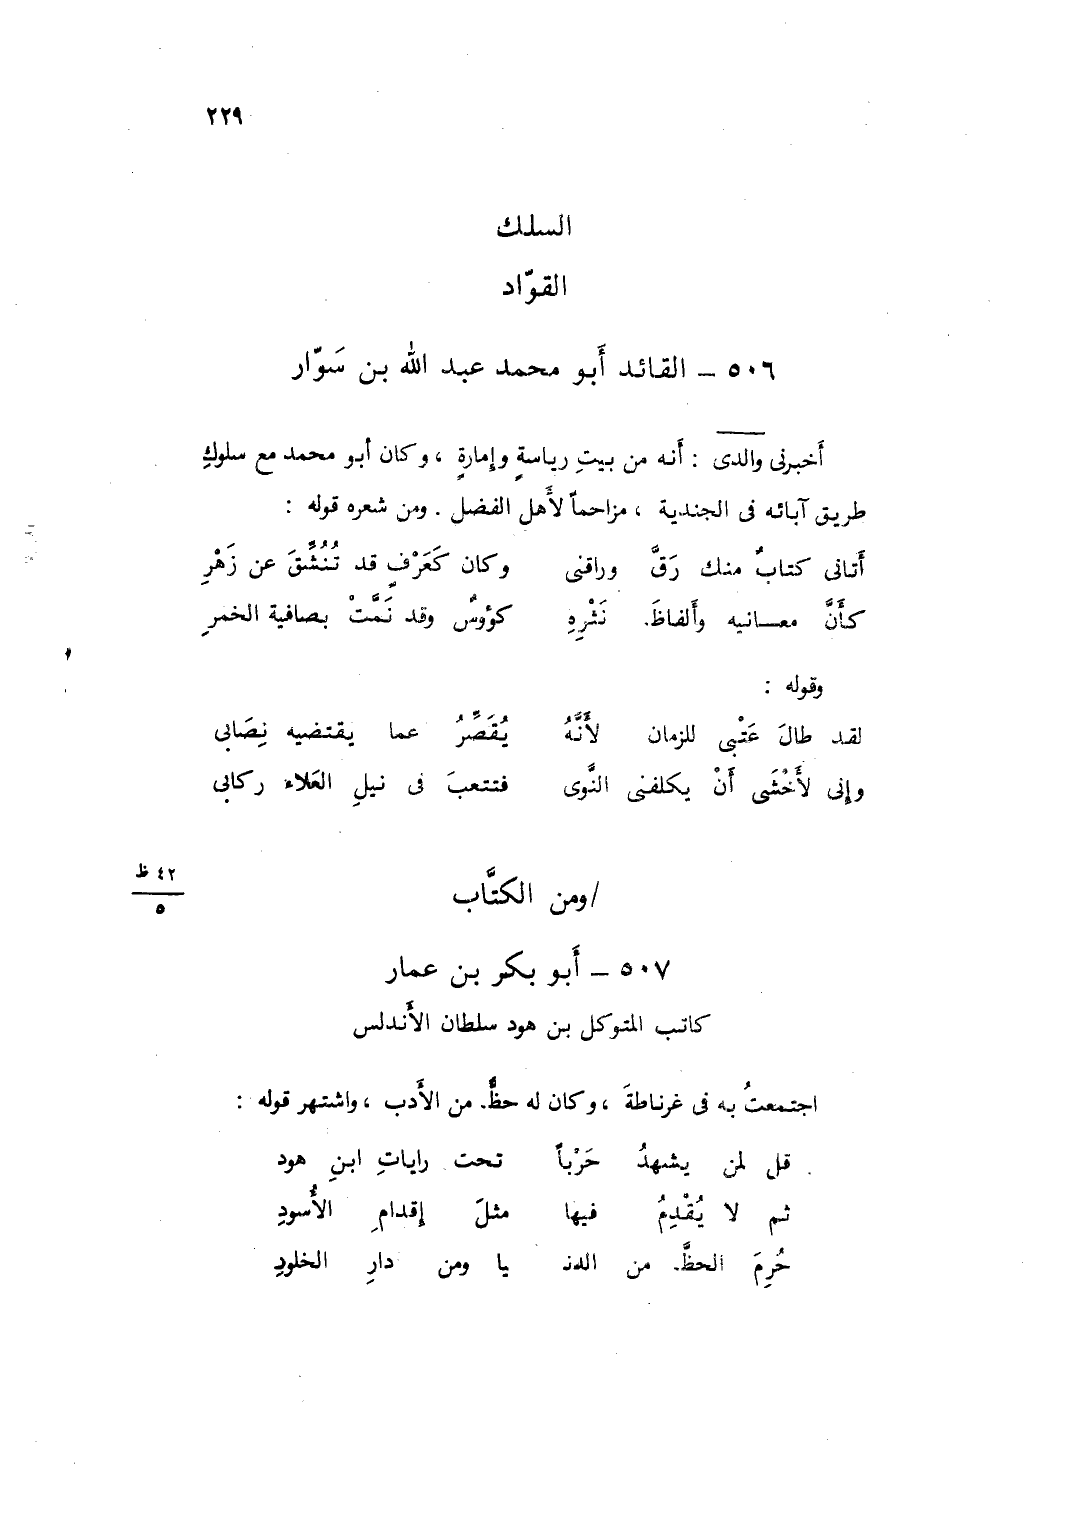 ٢٢٩
السلك
القوّاد
٥٠٦ – القائد أَبو محمد عبد الله بن سَوّار
أَخبرنى والدى : أَنه من بيتِ رياسةٍ وإمارةٍ ، وكان أبو محمد مع سلوكِ
طريق آبائه فى الجندية ، مزاحماً لأَهل الفضل . ومن شعره قوله :
أَتانى كتابٌ منك رَقَّ وراقنى وكان كَعَرْفٍ قد تُنُشِّقَ عن زَهْرِ
كأَنَّ معانيه وأَلفاظَ نَثْرِهِ كؤوسٌ وقد نَمَّتْ بصافية الخمرِ
وقوله :
لقد طالَ عَتْبى للزمان لأَنَّهُ يُقَصِّرُ عما يقتضيه نِصَابى
وإنى لأَخْشَى أَنْ يكلفنى النَّوى فتتعبَ فى نيلِ العَلاء ركابى
٤٢ ظ
٥
/ومن الكتَّاب
٥٠٧ – أَبو بكر بن عمار
كاتب المتوكل بن هود سلطان الأَندلس
اجتمعتُ به فى غرناطةَ ، وكان له حظٌّ من الأَدب ، واشتهر قوله :
قل لمن يشهدُ حَرْباً تحت راياتِ ابنِ هود
ثم لا يُقْدِمُ فيها مثلَ إقدامِ الأُسودِ
حُرِمَ الحظَّ من الدنـ يا ومن دارِ الخلودِ